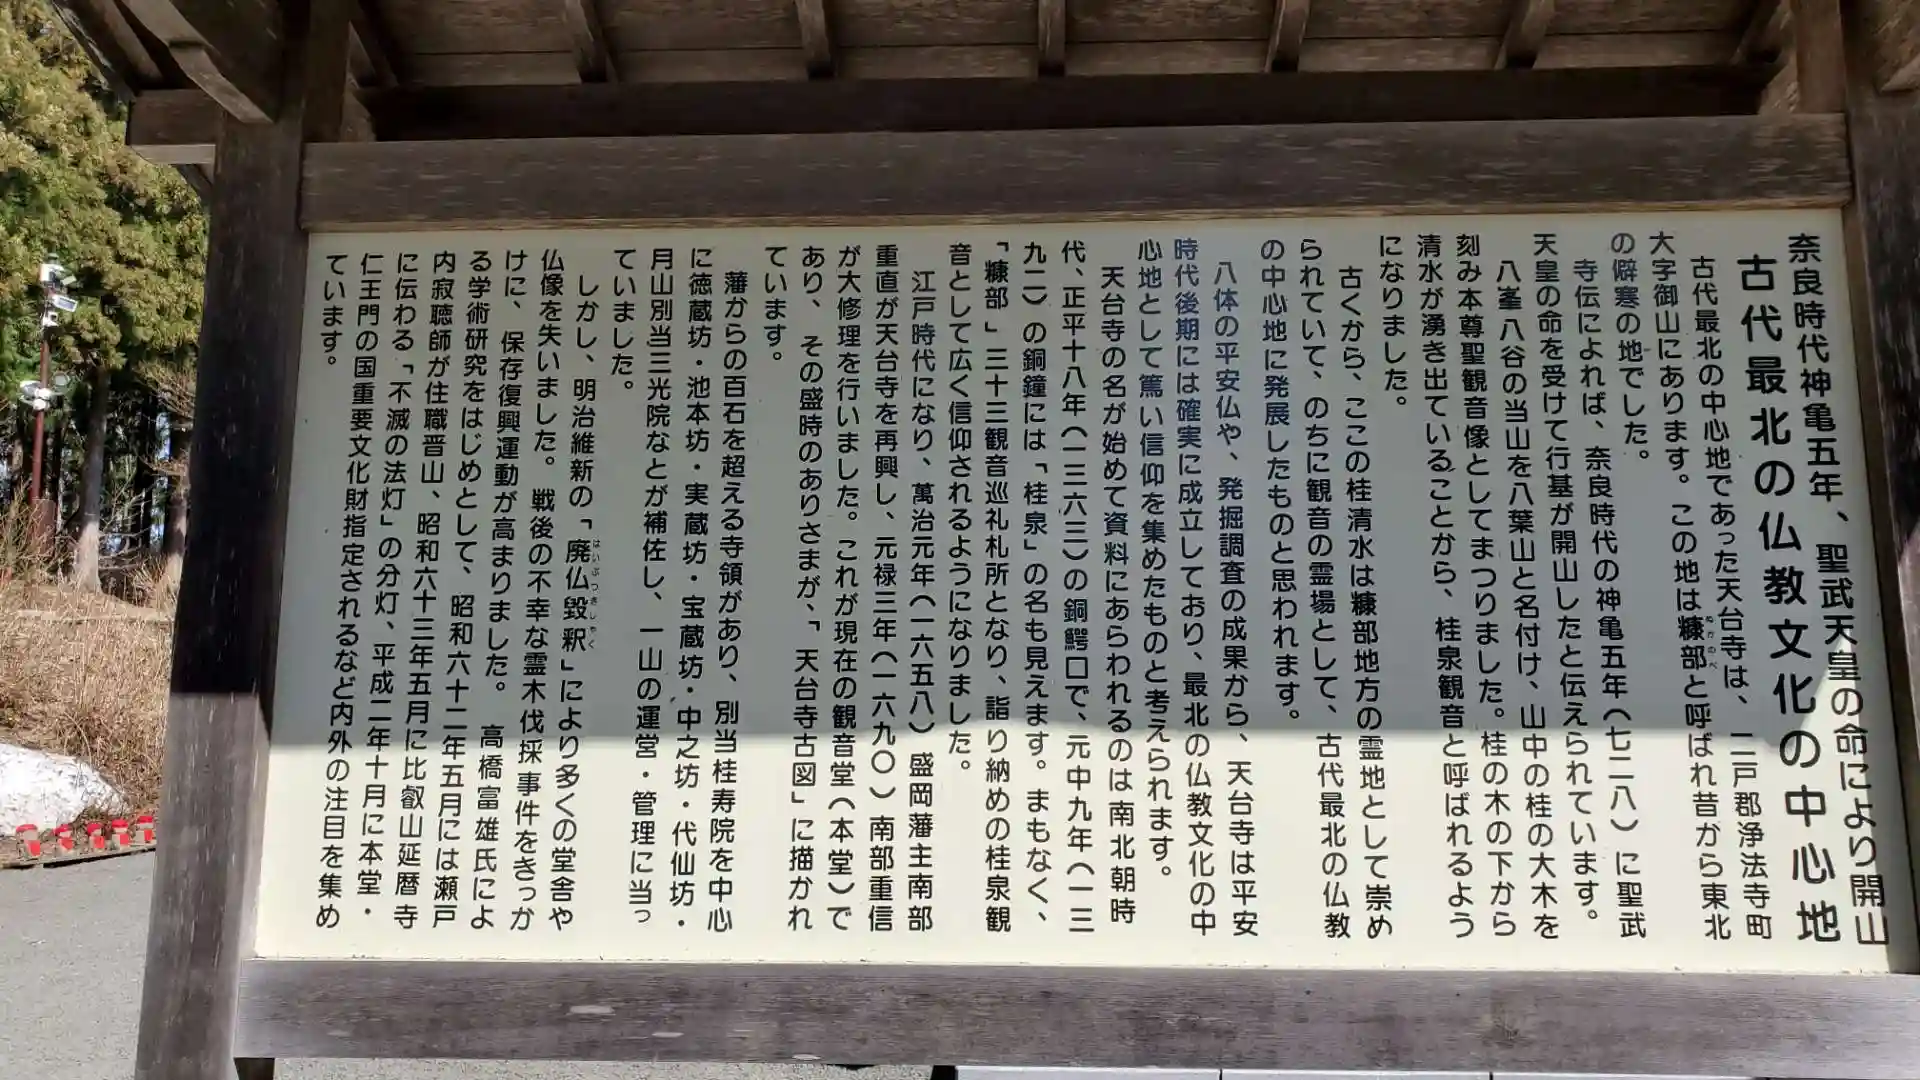 奈良時代神亀五年、聖武天皇の命により開山
古代最北の仏教文化の中心地
古代最北の中心地であった天台寺は、二戸郡浄法寺町
大字御山にあります。この地は糠部と呼ばれ昔から東北
ぬかのべ
の僻寒の地でした。
寺伝によれば、奈良時代の神亀五年(七二八)に聖武
天皇の命を受けて行基が開山したと伝えられています。
八峯八谷の当山を八葉山と名付け、山中の桂の大木を
刻み本尊聖観音像としてまつりました。桂の木の下から
清水が湧き出ていることから、桂泉観音と呼ばれるよう
になりました。
古くから、ここの桂清水は糠部地方の霊地として崇め
られていて、のちに観音の霊場として、古代最北の仏教
の中心地に発展したものと思われます。
八体の平安仏や、発掘調査の成果から、天台寺は平安
時代後期には確実に成立しており、最北の仏教文化の中
心地として篤い信仰を集めたものと考えられます。
天台寺の名が始めて資料にあらわれるのは南北朝時
代、正平十八年(一三六三)の銅鰐口で、元中九年(一三
九二)の銅鐘には「桂泉」の名も見えます。まもなく、
「糠部」三十三観音巡礼札所となり、詣り納めの桂泉観
音として広く信仰されるようになりました。
江戸時代になり、萬治元年(一六五八)盛岡藩主南部
重直が天台寺を再興し、元禄三年(一六九〇)南部重信
が大修理を行いました。これが現在の観音堂(本堂)で
あり、その盛時のありさまが、「天台寺古図」に描かれ
ています。
藩からの百石を超える寺領があり、別当桂寿院を中心
に徳蔵坊・池本坊・実蔵坊・宝蔵坊・中之坊・代仙坊・
月山別当三光院なとが補佐し、一山の運営・管理に当っ
ていました。
しかし、明治維新の「廃仏毀釈」により多くの堂舎や
はいぶつきしゃく
仏像を失いました。戦後の不幸な霊木伐採事件をきっか
けに、保存復興運動が高まりました。高橋富雄氏によ
る学術研究をはじめとして、昭和六十二年五月には瀬戸
内寂聴師が住職晋山、昭和六十三年五月に比叡山延暦寺
に伝わる「不滅の法灯」の分灯、平成二年十月に本堂・
仁王門の国重要文化財指定されるなど内外の注目を集め
ています。